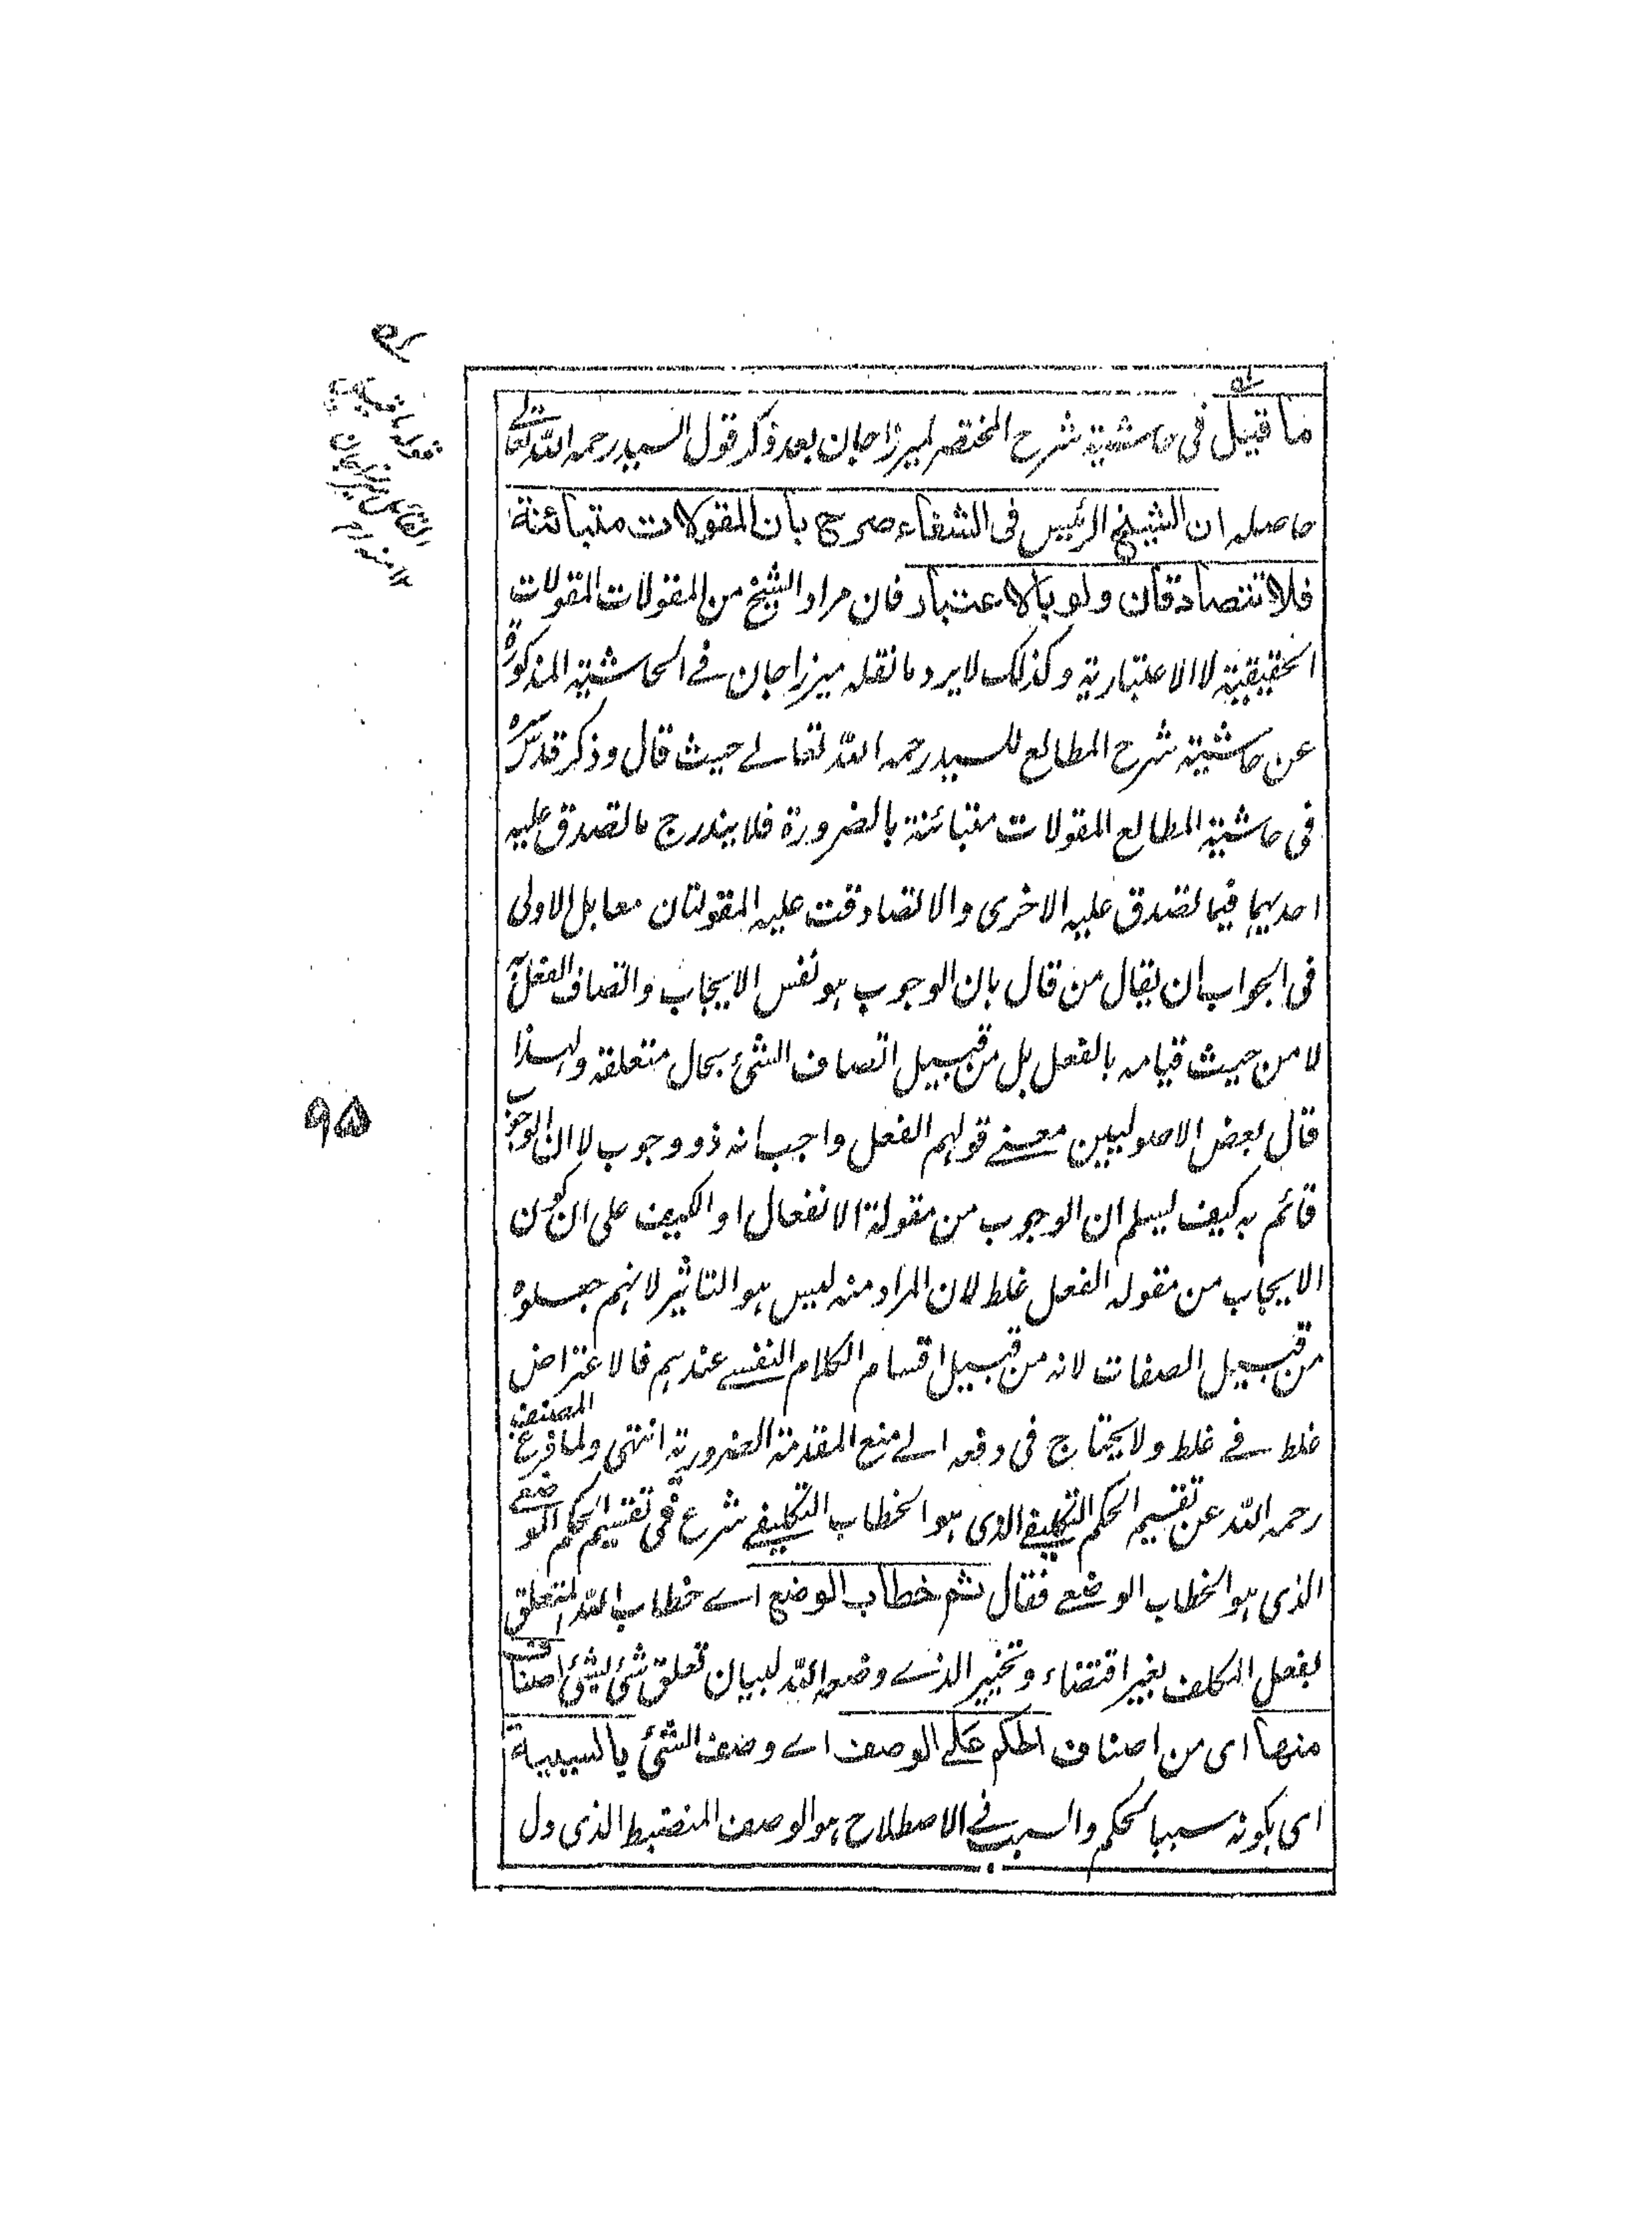 ما قيل في حاشية شرح المختصر لميرزاجان بعد ذكر قول السيد رحمه الله تعالى
حاصله ان الشيخ الرئيس فى الشفاء صرح بان المقولات متبائنة
فلا تتصادقان ولو بالاعتبار فان مراد الشيخ من المقولات المقولات
الحقيقية لا الاعتبارية وكذلك لا يرد ما نقله ميرزاجان فے الحاشية المذكورة
عن حاشية شرح المطالع للسيد رحمه الله تعالے حيث قال وذكر قدس سره
فى حاشية المطالع المقولات متبائنة بالضرورة فلا يندرج ما تصدق عليه
احديهما فيما تصدق عليه الاخرى والا لتصادقت عليه المقولتان معا بل الاولى
فى الجواب ان يقال من قال بان الوجوب هو نفس الايجاب واتصاف الفعل به
لا من حيث قيامه بالفعل بل من قبيل اتصاف الشئ بحال متعلقه ولهذا
قال بعض الاصوليين معنے قولهم الفعل واجب انه ذو وجوب لا ان الوجوب
قائم به كيف ليسلم ان الوجوب من مقولة الانفعال او الكيف على ان كون
الايجاب من مقوله الفعل غلط لان المراد منه ليس هو التاثير لانهم جعلوه
من قبيل الصفات لانه من قبيل اقسام الكلام النفسے عندهم فالاعتراض
غلط فے غلط ولا يحتاج فى دفعه الے منع المقدمة الضرورية انتهى ولما فرغ المصنف
رحمه الله عن تقسيم الحكم التكليفے الذى هو الخطاب التكليفے شرع فى تقسيم الحكم الوضعے
الذى هو الخطاب الوضعے فقال ثم خطاب الوضع اے خطاب الله المتعلق
بفعل المكلف بغير اقتضاء وتخيير الذے وضعه الله لبيان تعلق شئ بشئ اصناف
منها اى من اصناف الحكم علے الوصف اے وصف الشئ بالسببية
اى بكونه سببا لحكم والسبب فے الاصطلاح هو الوصف المنضبط الذى دل
٩٥